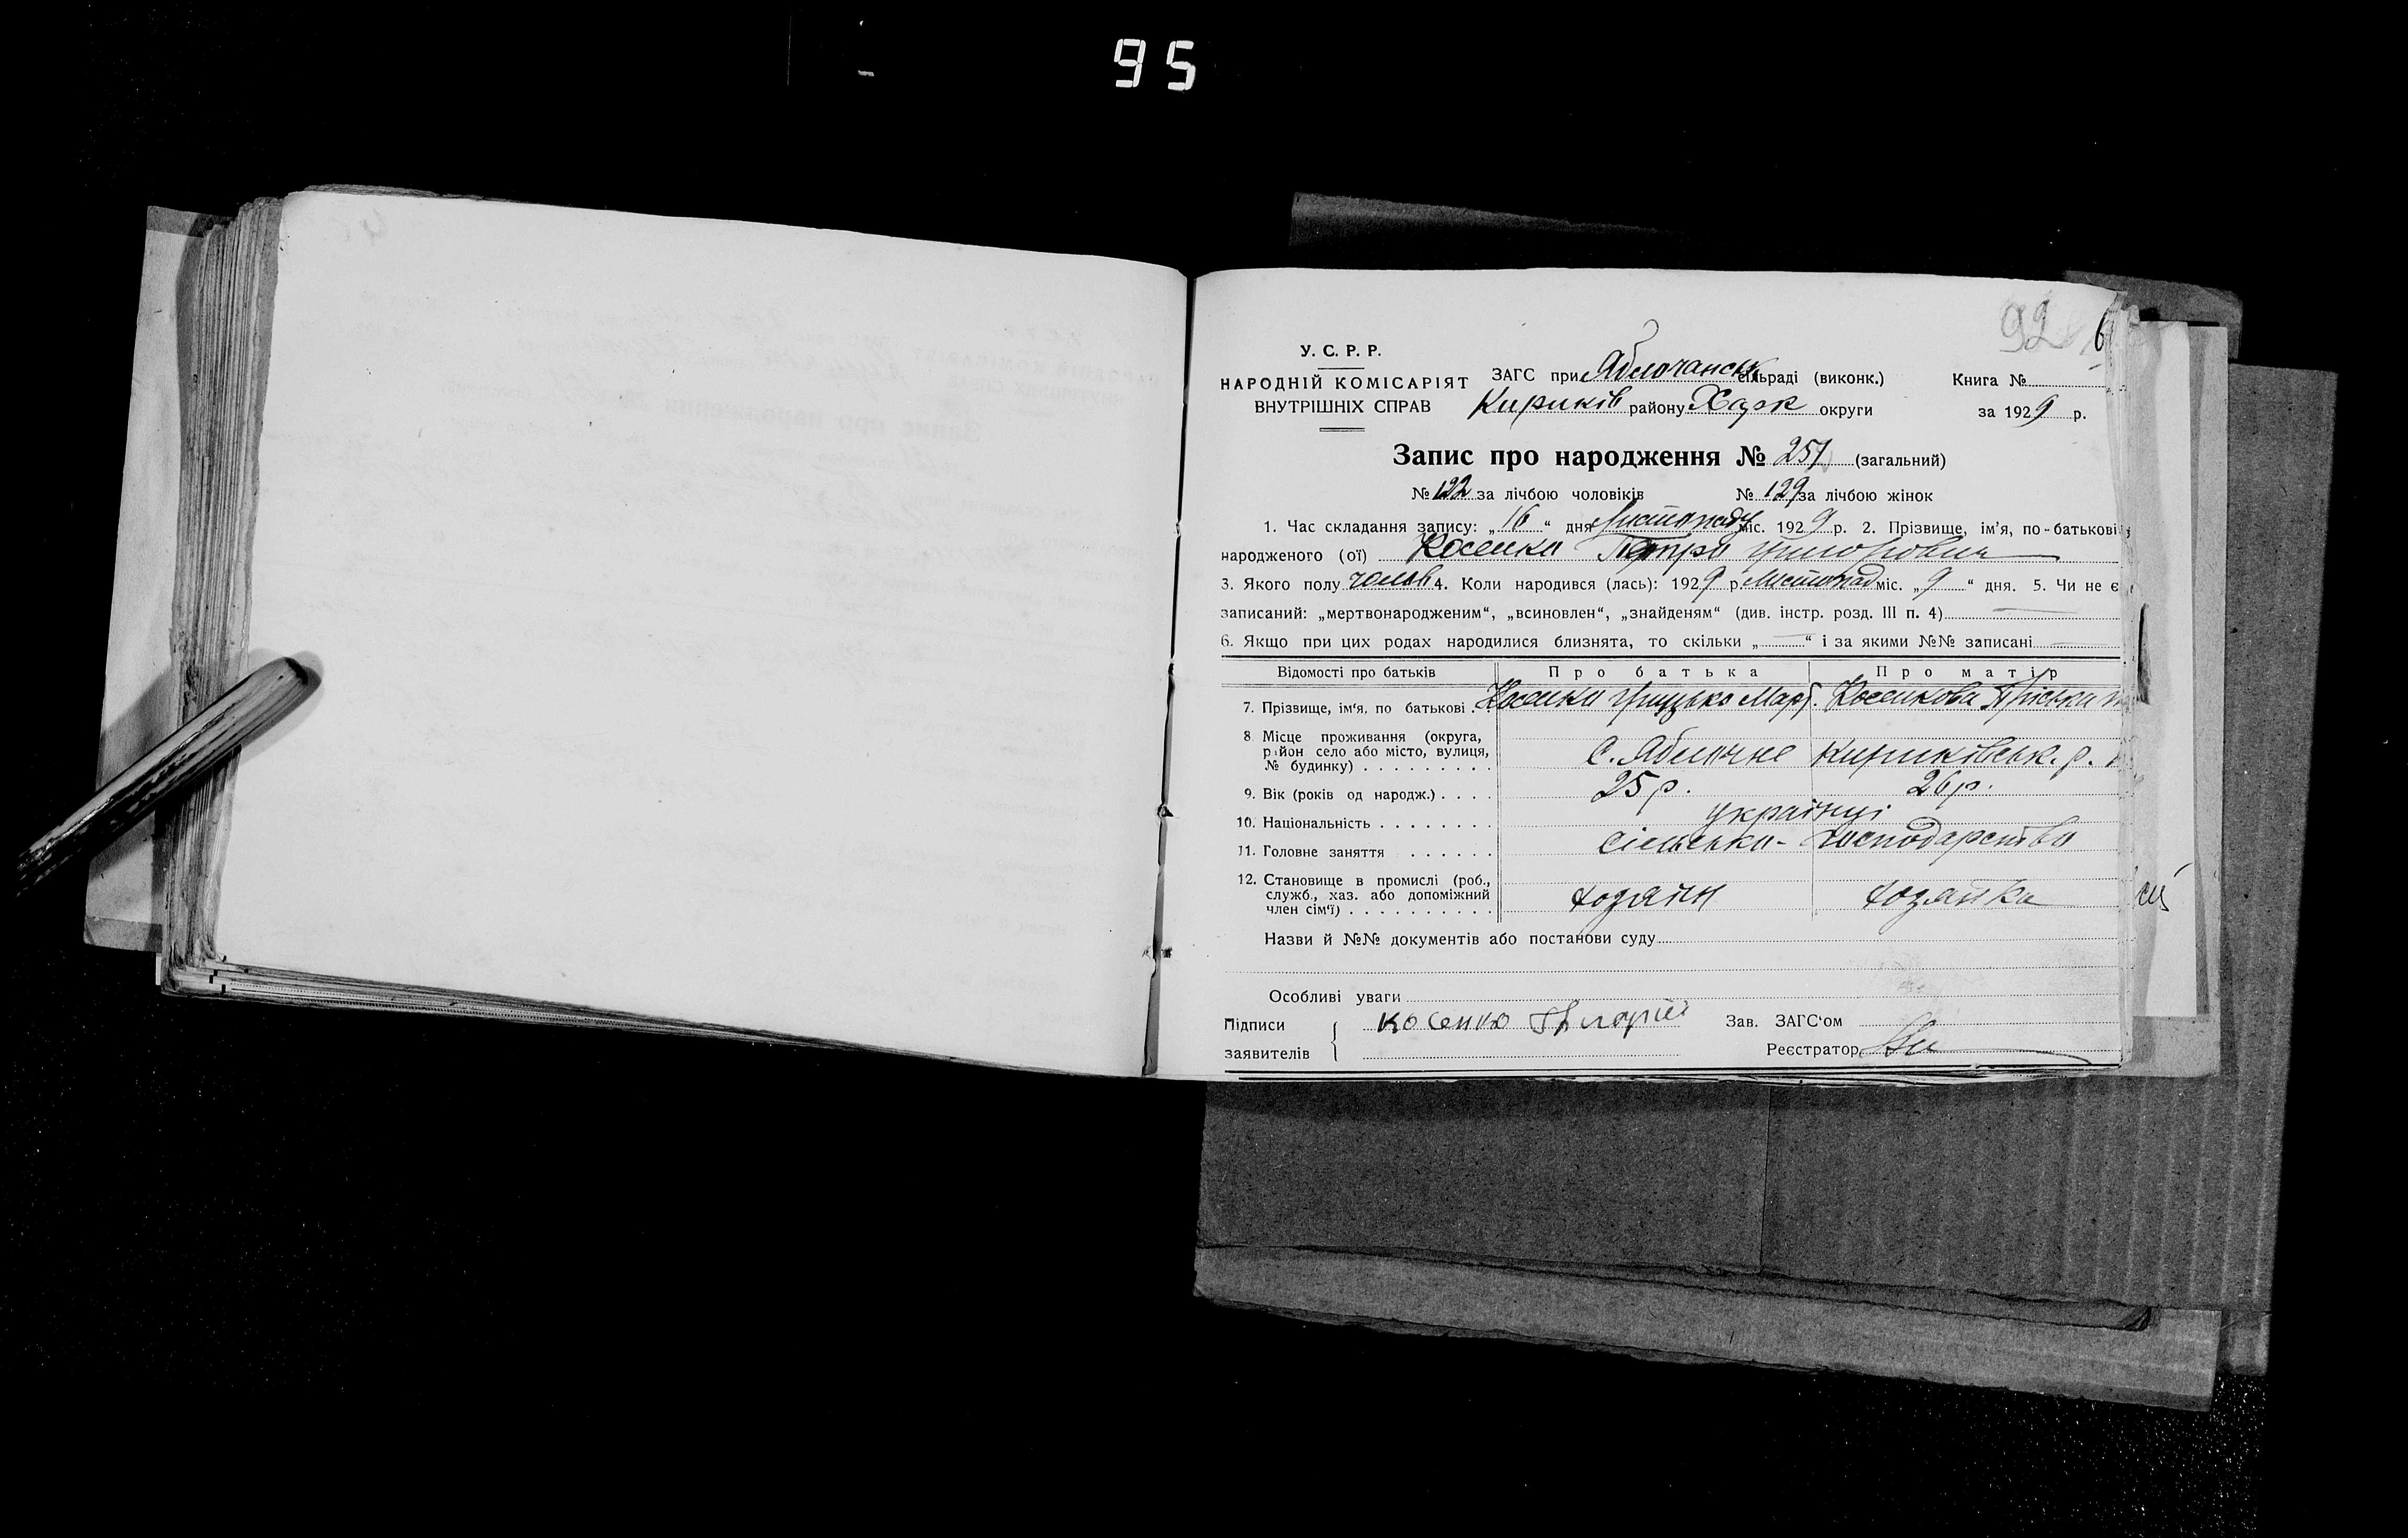 95
92
У. С. Р. Р.
НАРОДНІЙ КОМІСАРІЯТ
ВНУТРІШНІХ СПРАВ
ЗАГС при Яблочанськ сільраді (виконк.)
Книга №
Кириків району Харк округи
за 1929 р.
Запис про народження № 251 (загальний)
№ 122 за лічбою чоловіків № 129 за лічбою жінок
1. Час складання запису: „16“ дня Листопаду міс. 1929 р. 2. Прізвище, ім’я, по-батькові
народженого (ої) Косенко Петро Григорович
3. Якого полу чолов 4. Коли народився (лась): 1929 р. Листопад міс. „9“ дня. 5. Чи не є
записаний: „мертвонародженим“, „всиновлен“, „знайденям“ (див. інстр. розд. III п. 4)
6. Якщо при цих родах народилися близнята, то скільки „ “ і за якими №№ записані
Відомості про батьків Про батька Про матір
7. Прізвище, ім‘я, по батькові . Косенко Грицько Март. Косенкова Пріська
8 Місце проживання (округа,
район село або місто, вулиця,
№ будинку) . . . . . . . . . С. Яблочне Кириківськ. р.
9. Вік (років од народж.) . . . . 25 р. 26 р.
10. Національність . . . . . . . . українці
11. Головне заняття . . . . . . сільсько-господарство
12. Становище в промислі (роб.,
служб., хаз. або допоміжний
член сім‘ї) . . . . . . . . . . хозяїн хозяйка
Назви й №№ документів або постанови суду
Особливі уваги
Підписи
заявителів
Косенко Григорий
Зав. ЗАГС‘ом
Реєстратор